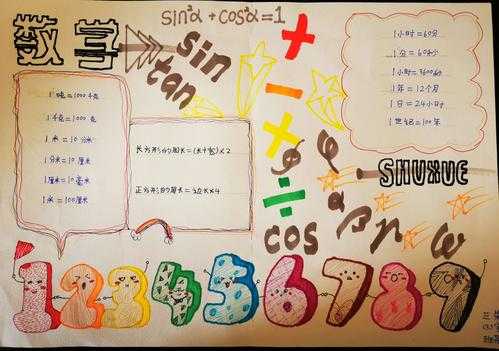 数学
sin²α + cos²α = 1
sin
tan
1吨=1000千克
1千克=1000克
1米=10分米
1分米=10厘米
1厘米=10毫米
1米=100厘米
长方形的周长=(长+宽)×2
正方形的周长=边长×4
+
-
×
÷
cos
1小时=60分
1分=60秒
1小时=3600秒
1年=12个月
1日=24小时
1世纪=100年
SHUXUE
φ
α
β
ω
1 2 3 4 5 6 7 8 9